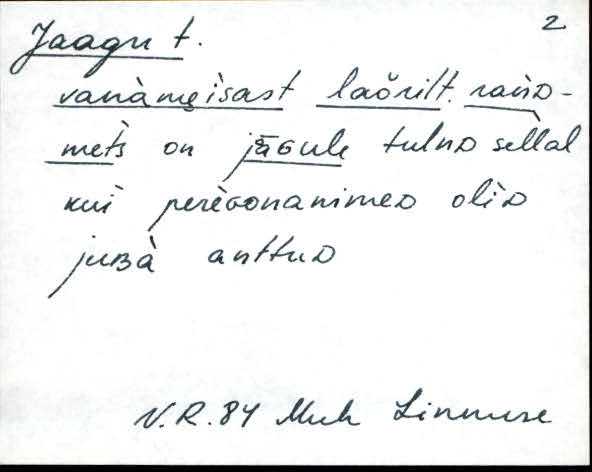 2
Jaagu t.
vanàmęìsast laǒrilt. raǹᴅ-
mets̀ on jāGule tulnᴅ sellal
kui perèvonanimeᴅ oliᴅ
juʙà anttuᴅ
V.R. 84 Muh Linnuse